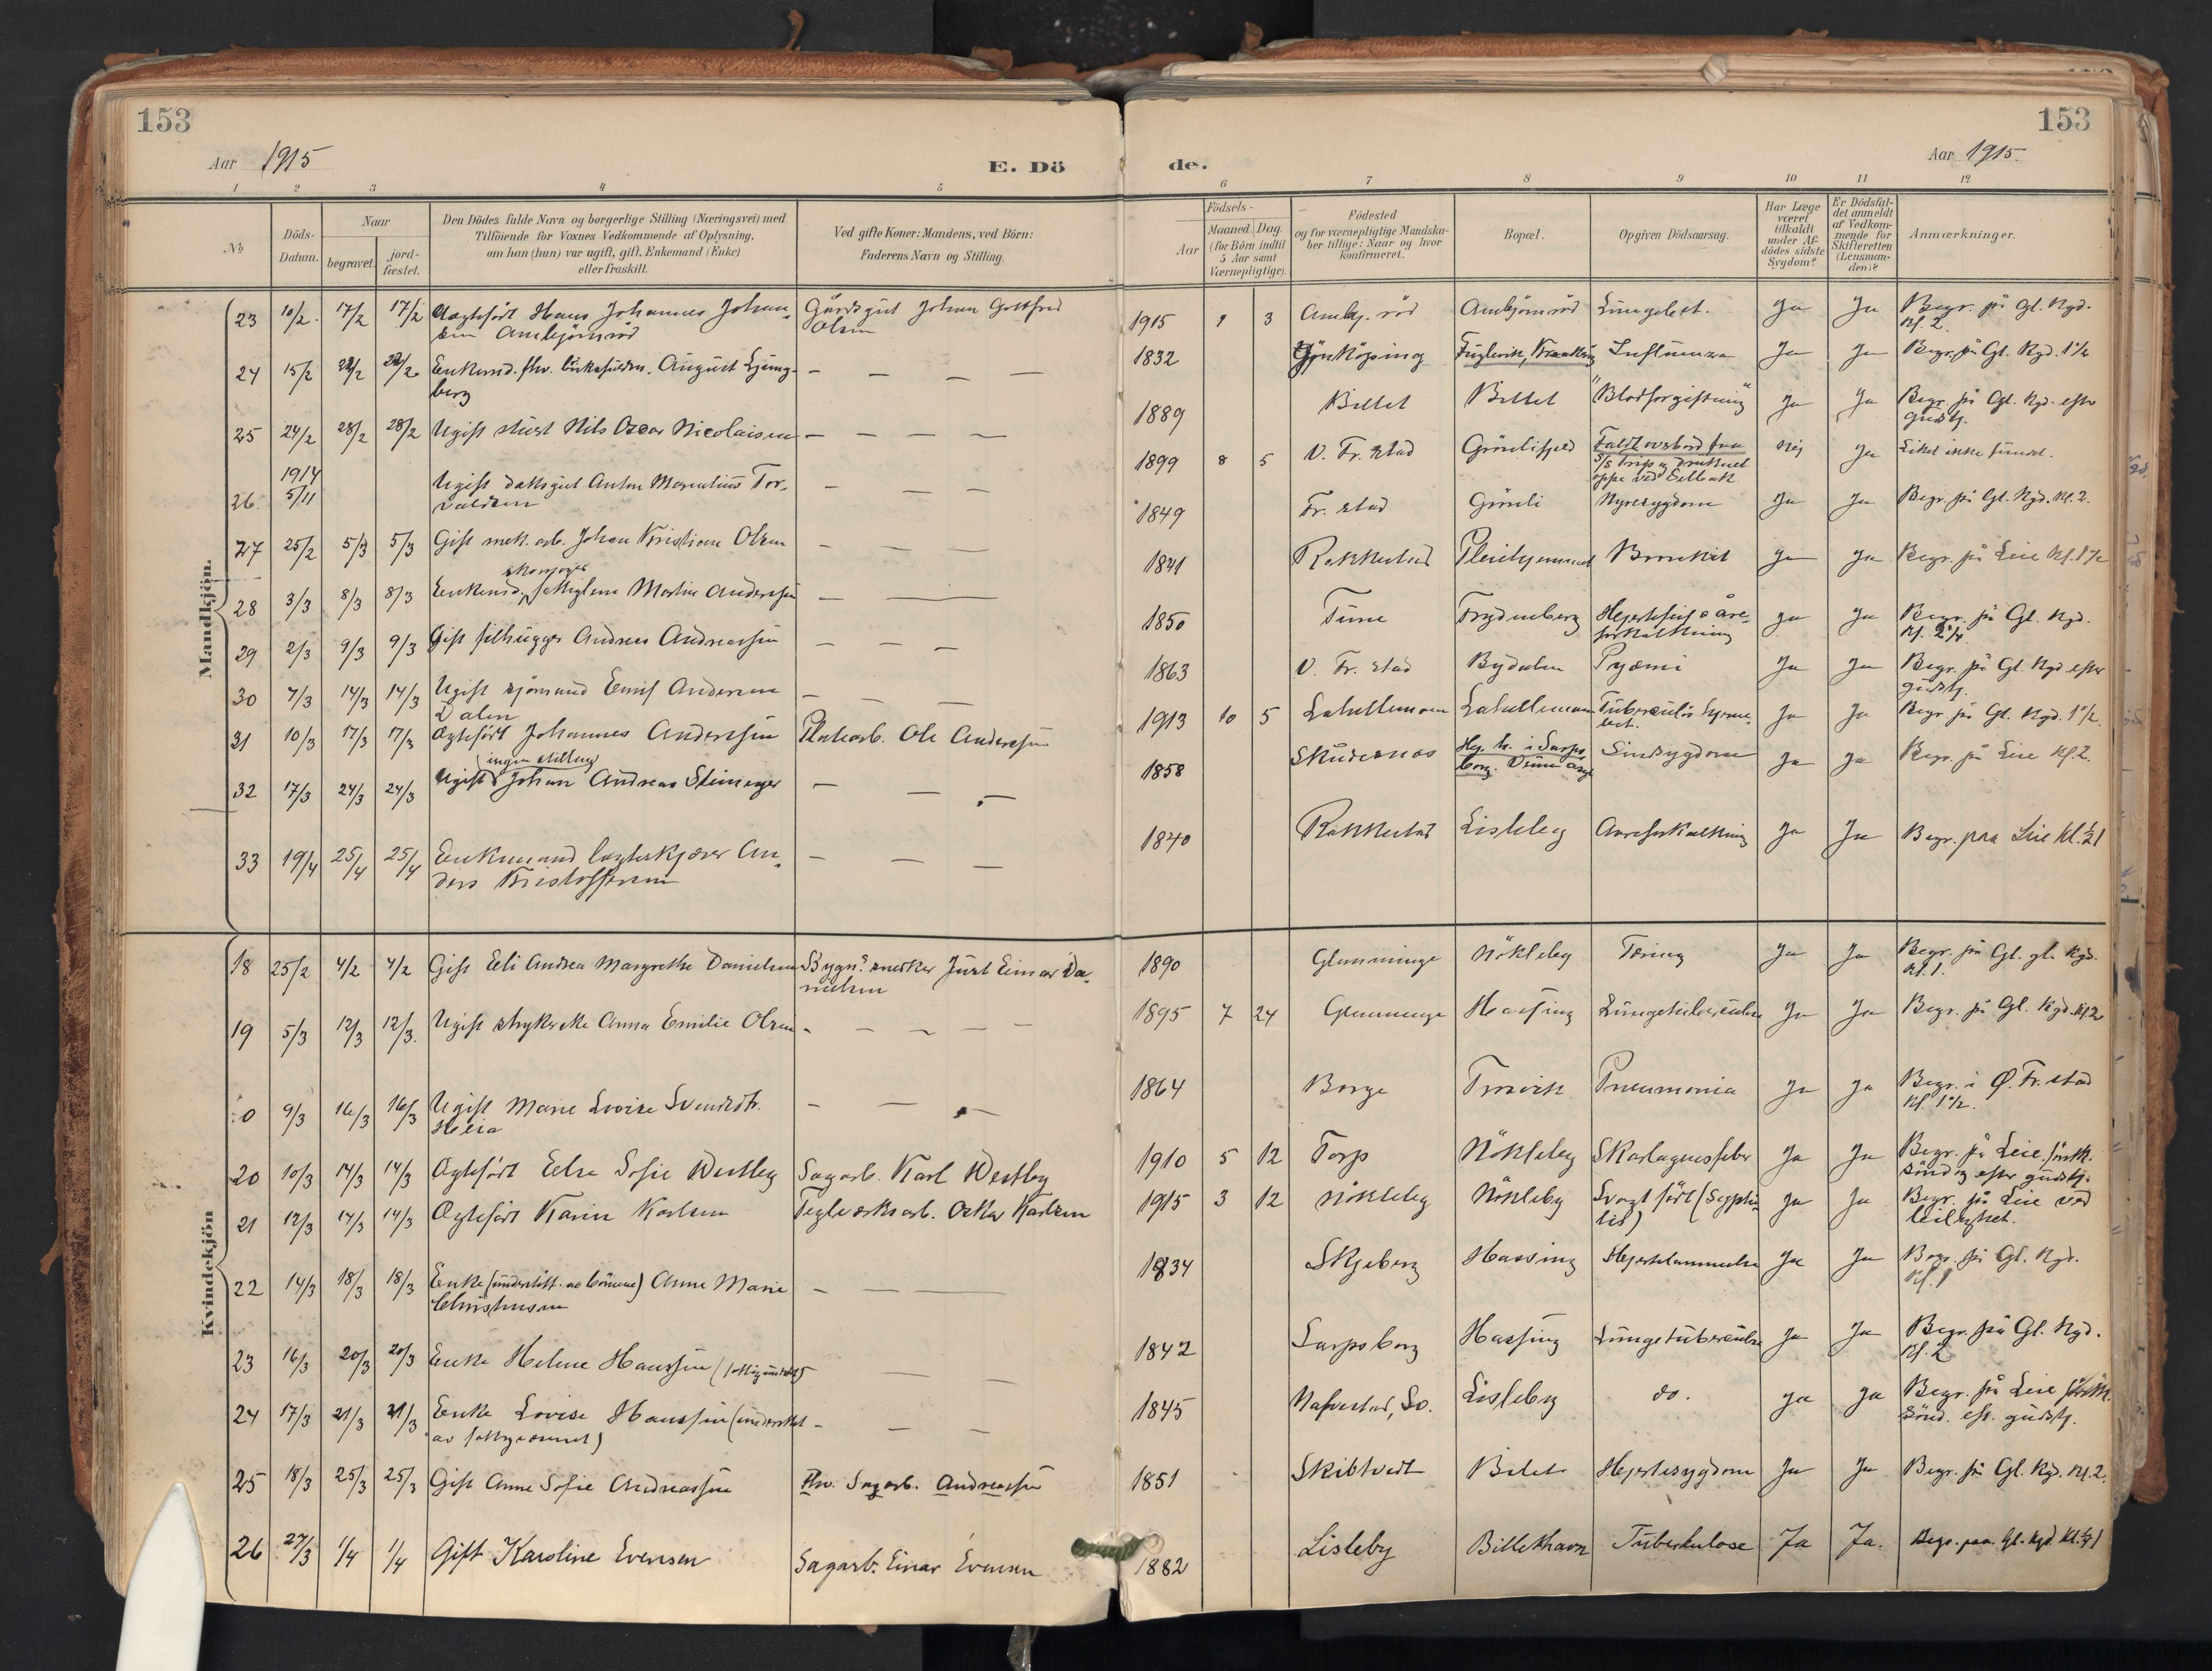 153
153
Aar 1915
E. Dö
de.
Aar 1915.
1 2 3 4 5 6 7 8 9 10 11 12
No
Döds-
Datum.
Naar
begravet.
jord-
fæstet.
Den Dödes fulde Navn og borgerlige Stilling (Næringsvei) med
Tilföiende for Voxnes Vedkommende af Oplysning,
om han (hun) var ugift, gift, Enkemand (Enke)
eller fraskilt.
Ved gifte Koner: Mandens, ved Börn:
Faderens Navn og Stilling.
Födsels-
Aar
Maaned. Dag.
(for Börn indtil
5 Aar samt
Værnepligtige).
Födested
og for værnepligtige Mandska-
ber tillige: Naar og hvor
konfirmeret.
Bopæl.
Opgiven Dödsaarsag.
Har Læge
været
tilkaldt
under Af-
dödes sidste
Sygdom?
Er Dödsfal-
det anmeldt
af Vedkom-
mende for
Skifteretten
(Lensman-
den)?
Anmærkninger.
Mandkjön.
23 10/2. 17/2 17/2 Ægtefödt Hans Johannes Johan-
sen Ambjörnröd
Gårdsgut Johan Gottfred
Olsen
1915 1 3 Ambj. röd Ambjörnröd Lungebet. Ja Ja Begr. på Gl. Kgd.
Kl. 2.
24 15/2 22/2 22/2 Enkemd. fhv. August Ljung-
berg
1832 Jönköping Influenza Ja Ja Begr. på Gl. Kgd. 1 1/2
25 24/2 28/2 28/2 Ugift Nils Oscar Nicolaisen
1889 Billet Billet "Blodforgiftning" Ja Ja Begr. på Gl. Kgd. efter
gudstj.
1914
26. 5/11 Ugift dæksgut Anton Marentius Tor-
valdsen
1899 8 5 V. Fr. stad Faldt overbord fra
S/S Trip og druknet
oppe ved Sellbak
Nej Ja Liket ikke fundet.
27 25/2 5/3 5/3 Gift mek. arb. Johan Kristian Olsen
1849 Fr. stad Grönli Nyresygdom Ja Ja Begr. på Gl. Kgd. Kl. 2.
28 3/3 8/3 8/3 Enkemd, skomager
fattiglem Martin Andersen
1841 Rakkestad Pleiehjemmet Bronkit Ja Ja Begr. på Leie Kl. 1 1/2
29 2/3 9/3 9/3 Gift filhugger Andreas Andreassen
1850 Tune Frydenberg Hjertefeil o åre-
forkalkning
Ja Ja Begr. på Gl. Kgd.
30 7/3 14/3 14/3 Ugift sjömand Emil Andersen
Dalen
1863 V. Fr. stad Bydalen Pyæmi Ja Ja Begr. på Gl. Kgd efter
gudstj.
31 10/3 17/3 17/3 Ægtefödt Johannes Anderssen Platearb. Ole Anderssen
1913 10 5 Labellemoen Labellemoen Tuberculös hjerne-
bet.
Ja Ja Begr. på Gl. Kgd. 1 1/2.
32 17/3 24/3 24/3 Ugift (ingen stilling)
Johan Andreas Steinseger
1858 Skudesnes Sindsygdom Ja Ja Begr. på Leie Kl. 2.
33 19/4 25/4 25/4 Enkemand lægterskjærer An-
ders Kristoffersen
1840 Rakkestad Lisleby Aareforkalkning Ja Ja Begr. paa Leie kl. 1/2 1
Kvindekjön
18 25/2 4/2 4/2 Gift Eli Andrea Margrethe Danielsen Bygn.snekker Just Einar Da-
nielsen
1890 Glemminge Nökleby Tæring Ja Ja Begr. på Gl. gl. Kgd.
Kl. 1.
19 5/3 12/3 12/3. Ugift strykerske Anna Emilie Olsen
1895 7 24 Glemminge Hassing Lungetuberculose Ja Ja Begr. på Gl. Kgd. Kl 2
0 9/3 16/3 16/3 Ugift Marie Lovise Svendsdtr.
Heia
1864 Borge Trosvik Pneumonia Ja Ja Begr. i Ø. Fr. stad
Kl. 1 1/2.
20 10/3 14/3 14/3 Ægtefödt Elsa Sofie Westby Sagarb. Karl Westby
1910 5 12 Torp Nökleby Skarlagensfeber Ja Ja Begr. på Leie förstk.
söndag efter gudstj.
21 12/3 14/3 14/3 Ægtefödt Karin Karlsen Teglverksarb. Oskar Karlsen
1915 3 12 Nökleby Nökleby Svagt född (Syphi-
lis)
Ja Ja Begr. på Leie ved
leilighet.
22 14/3 18/3 18/3 Enke (understött. av börnene) Anne Marie
Christensen
1834 Skjeberg Hassing Hjertelammelse Ja Ja Begr. på Gl. Kgd.
Kl. 1
23 16/3 20/3 20/3 Enke Helene Hanssen (fattigunderst)
1842 Sarpsborg Hassing Lungetuberculose Ja Ja Begr. på Gl. Kgd.
Kl. 2
24 17/3 21/3 21/3 Enke Lovise Hanssen (understöt
av fattigvæsenet)
1845 Nafverstad, Sv. Lisleby do. Ja Ja Begr. på Leie förstk.
Sönd. eft. gudstj.
25 18/3 25/3 25/3 Gift Anne Sofie Andreassen Fhv. Sagarb. Andreassen
1851 Skibtvedt Bilet Hjertesygdom Ja Ja Begr. på Gl. Kgd. Kl. 2.
26 27/3 1/4 1/4 Gift Karoline Evensen Sagarb. Einar Evensen
1882 Lisleby Billethavn Tuberkulose Ja Ja. Begr. paa Gl. Kgd. Kl. 1/2 1